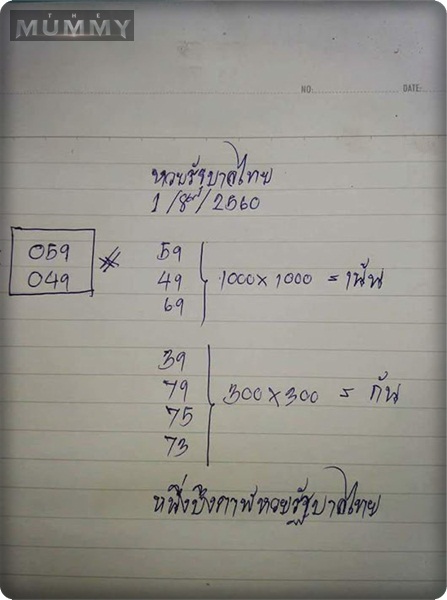 THE
MUMMY
NO. DATE:
หวยรัฐบาลไทย
1/8/2560
059
049
59
49
69
1000x1000 = เน้น
39
79
75
73
300x300 = กัน
หนึ่งบึงกาฬหวยรัฐบาลไทย